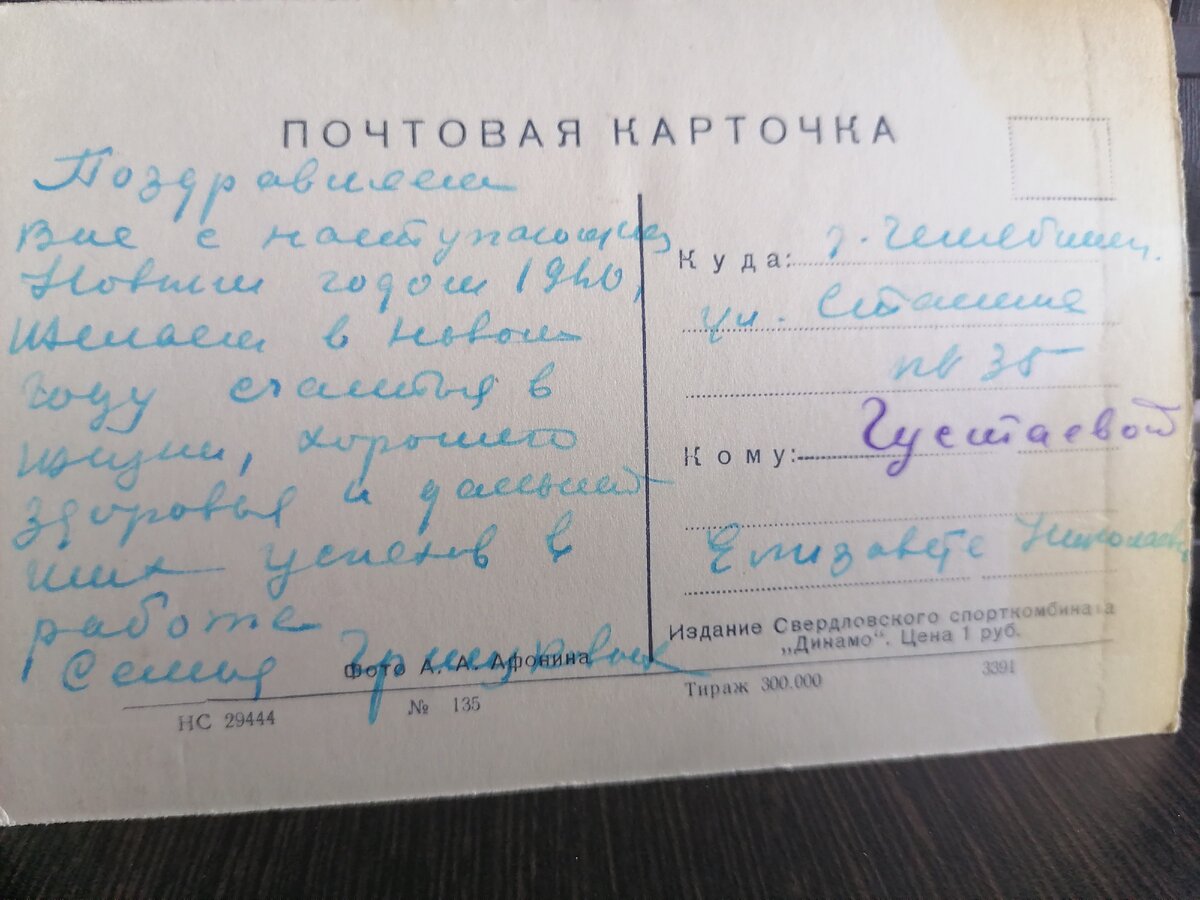 ПОЧТОВАЯ КАРТОЧКА
Поздравляем
Вас с наступающим
Новым годом
Желаем в новом
году счастья в
жизни, хорошего
здоровья и дальней
ших успехов в
работе
Семья
Куда: г. Челябинск.
ул. Сталина
кв 35
Кому: Густаевой
Елизавете Николаевн
Издание Свердловского спорткомбината
„Динамо“. Цена 1 руб.
Фото А. А. Афонина
НС 29444 № 135 Тираж 300.000 3391